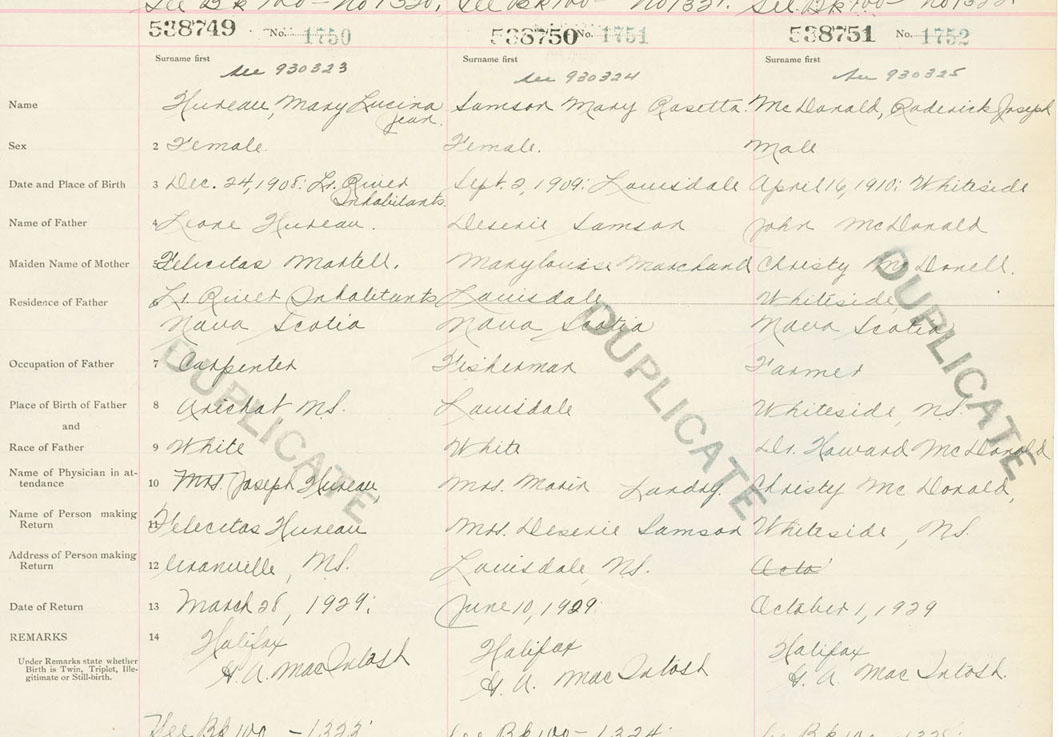 See Bk 100 - No 1320, See Bk 100 - No 1321. See Bk 100 - No 1322.
538749 No. 1750 538750 No. 1751 538751 No. 1752
Surname first Surname first Surname first
see 930323 see 930324 see 930325
Name Hureau, Mary Lucina Samson Mary Rosetta. McDonald, Roderick Joseph
Jean.
Sex 2 Female. Female. Male
Date and Place of Birth 3 Dec. 24, 1908: Lr. River Sept. 2, 1909: Louisdale April 16, 1910: Whiteside
Inhabitants
Name of Father 4 Leone Hureau. Deserie Samson John McDonald
Maiden Name of Mother Felicitas Martell. Marylouise Marchand Christy McDonell.
Residence of Father Lr. River Inhabitants Louisdale Whiteside,
Nova Scotia Nova Scotia Nova Scotia
Occupation of Father 7 Carpenter Fisherman Farmer
Place of Birth of Father 8 Arichat N.S. Louisdale Whiteside, N.S.
and
Race of Father 9 White White Dr. Howard McDonald
Name of Physician in at-
tendance 10 Mrs. Joseph Hureau, Mrs. Marie Landry. Christy McDonald,
Name of Person making
Return 11 Felicitas Hureau Mrs. Deserie Samson Whiteside, N.S.
Address of Person making
Return 12 Granville, N.S. Louisdale, N.S. Octo
Date of Return 13 March 28, 1929: June 10, 1929 October 1, 1929
REMARKS 14 Halifax Halifax Halifax
H. A. MacIntosh H. A. MacIntosh H. A. MacIntosh.
Under Remarks state whether
Birth is Twin, Triplet, Ille-
gitimate or Still-birth.
DUPLICATE DUPLICATE DUPLICATE
See Bk 100 - 1323 See Bk 100 - 1324